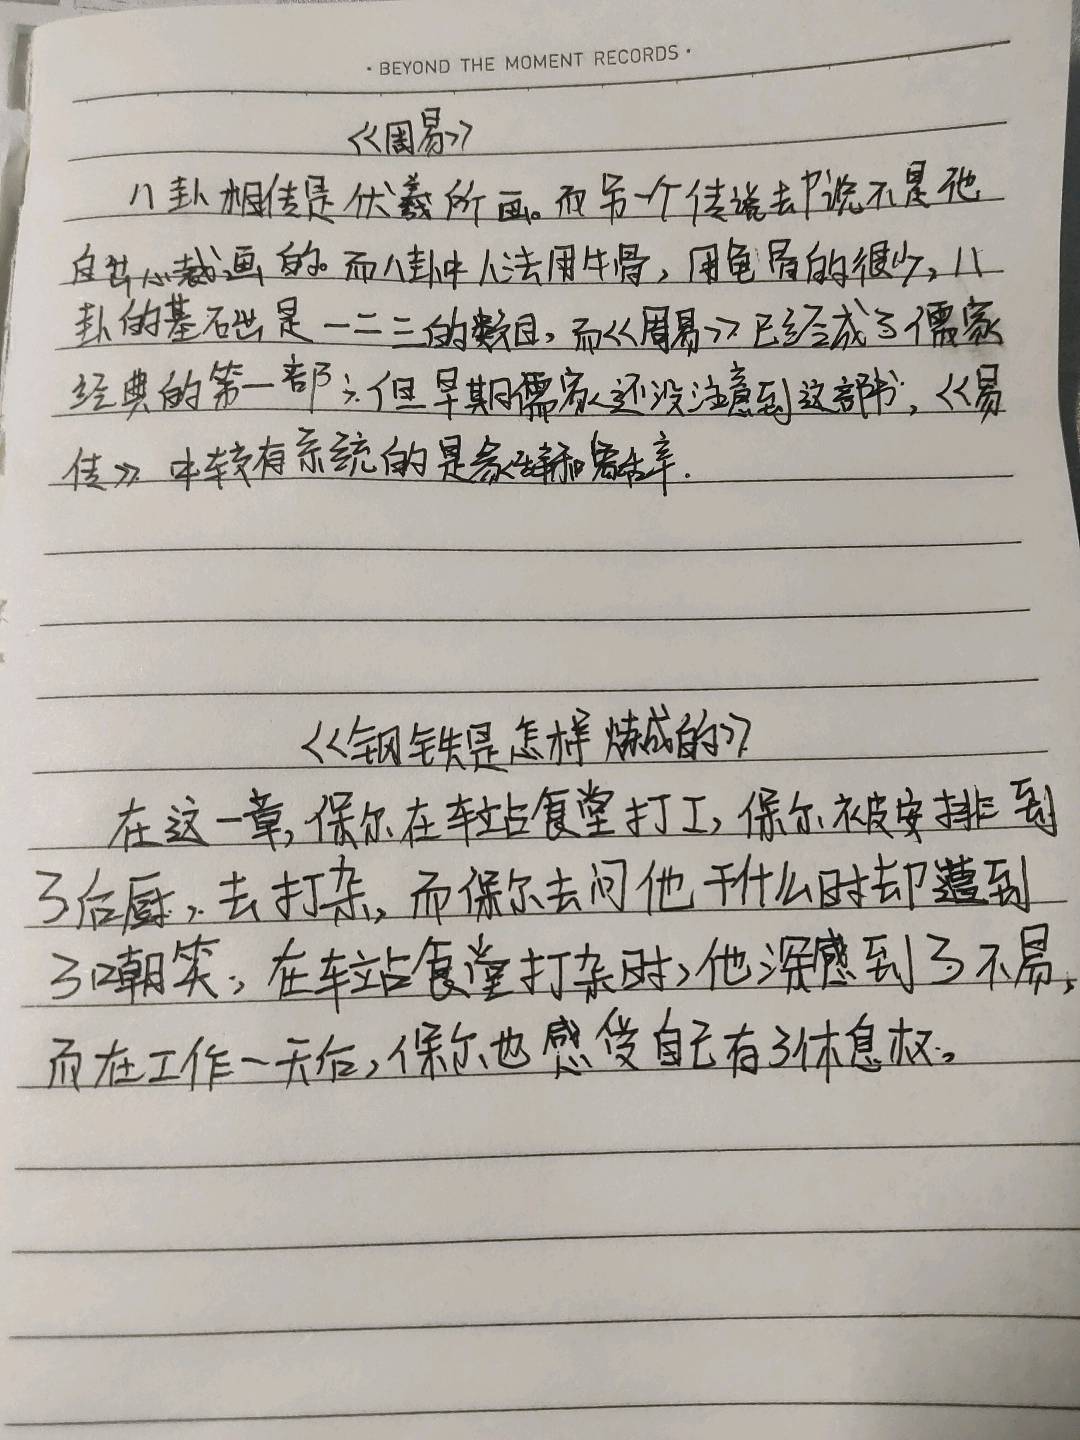 · BEYOND THE MOMENT RECORDS ·
《周易》
八卦相传是伏羲所画。而另一个传说却说不是他
自出心裁画的。而八卦中人法用牛骨，用龟骨的很少，八
卦的基础是一二三的数目，而《周易》已经成了儒家
经典的第一部，但早期儒家还没注意到这部书，《易
传》中较有系统的是象辞和
《钢铁是怎样炼成的》
在这一章，保尔在车站食堂打工，保尔被安排到
了后厨，去打杂，而保尔去问他干什么时却遭到
了嘲笑，在车站食堂打杂时，他深感到了不易，
而在工作一天后，保尔也感受自己有了休息权。